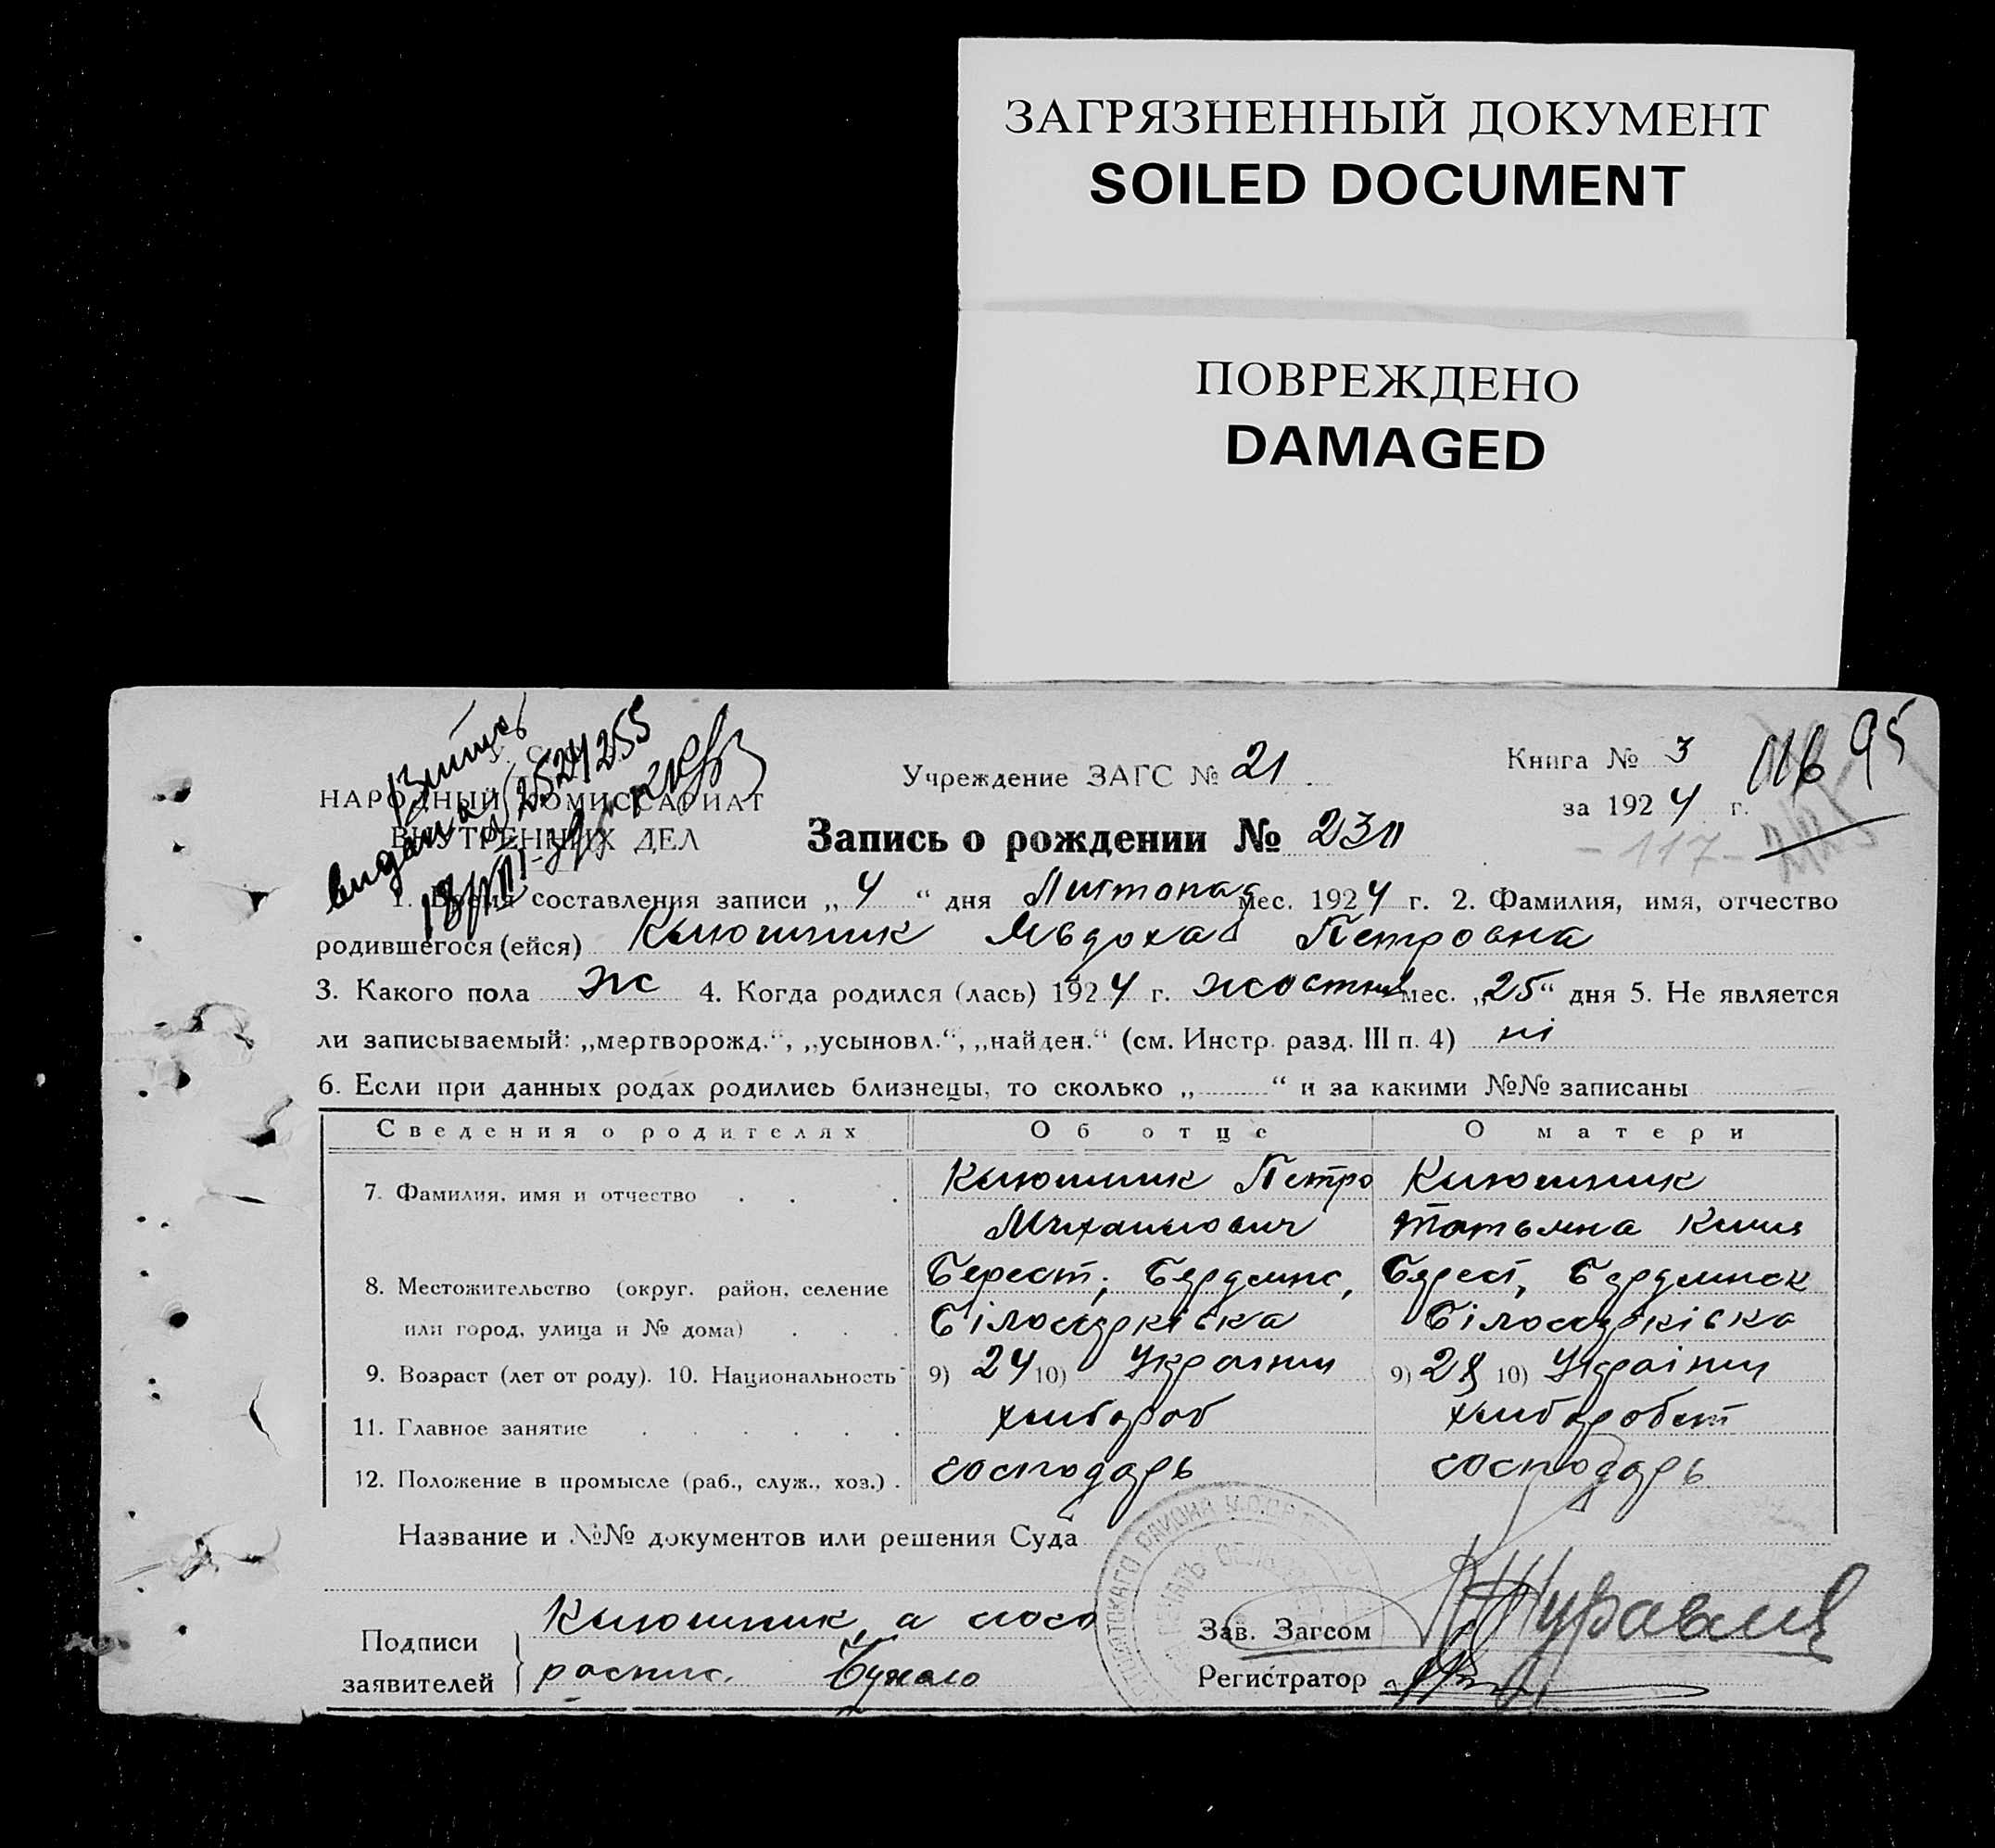 ЗАГРЯЗНЕННЫЙ ДОКУМЕНТ
SOILED DOCUMENT
ПОВРЕЖДЕНО
DAMAGED
Витяг
видан 2524255
НАРОДНЫЙ КОМИССАРИАТ
ВНУТРЕННИХ ДЕЛ
Учреждение ЗАГС № 21
Книга № 3
за 1924 г.
116 95
-117-
Запись о рождении № 230
1. Время составления записи „4“ дня Листопад мес. 1924 г. 2. Фамилия, имя, отчество
родившегося (ейся) Клюшник Явдоха Петровна
3. Какого пола ж 4. Когда родился (лась) 1924 г. жовтня мес. „25“ дня 5. Не является
ли записываемый: „мертворожд.“, „усыновл.“, „найден.“ (см. Инстр. разд. III п. 4) ні
6. Если при данных родах родились близнецы, то сколько „ “ и за какими №№ записаны
Сведения о родителях Об отце О матери
7. Фамилия, имя и отчество Клюшник Петро Клюшник
Михайлович Татьяна
8. Местожительство (округ. район, селение Берест, Бердянс, Берест, Бердянск
или город, улица и № дома)
9. Возраст (лет от роду). 10. Национальность 9) 24 10) Украин 9) 28 10) Україн
11. Главное занятие хлібороб
12. Положение в промысле (раб., служ., хоз.) господарь господарь
Название и №№ документов или решения Суда
Подписи заявителей Клюшник, а
роспис.
Зав. Загсом Журавля
Регистратор